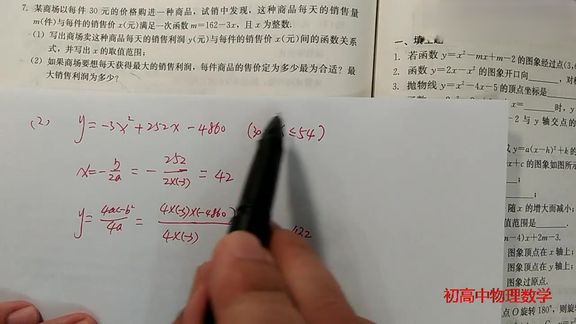 7. 某商场以每件 30 元的价格购进一种商品，试销中发现，这种商品每天的销售量
m(件)与每件的销售价 x(元)满足一次函数 m=162-3x，且 x 为整数.
(1) 写出商场卖这种商品每天的销售利润 y(元)与每件的销售价 x(元)间的函数关系
式，并写出 x 的取值范围;
(2) 如果商场要想每天获得最大的销售利润，每件商品的售价定为多少最为合适？最
大销售利润为多少?
(2) y=-3x²+252x-4860 (30 ≤54)
x=-b/2a=-252/2×(-3)=42
y=4ac-b²/4a=4×(-3)×(-4860)/4×(-3)
1. 若函数 y=x²-mx+m-2 的图象经过点(3,6
2. 函数 y=2x-x² 的图象开口向 ，对
3. 抛物线 y=x²-4x-5 的顶点坐标是
时，y
-2 与 y 轴交点的
y=a(x-h)²+k 的
x+c 的图象如图所
随 x 的增大而减小;
值范围是
m-4)x+2m-3.
图象顶点在 x 轴上;
图象顶点在 y 轴上;
图象过原点.
点 O 旋转 180°，则旋
初高中物理数学